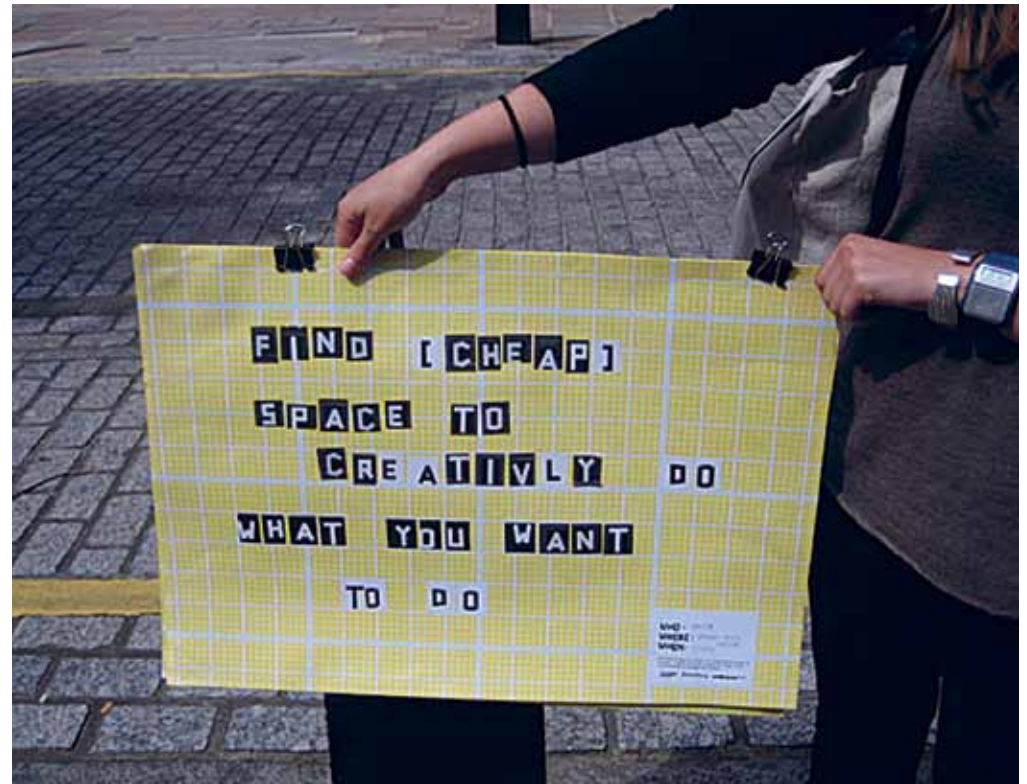 FIND [CHEAP]
SPACE TO
CREATIVLY DO
WHAT YOU WANT
TO DO
WHO:
WHERE:
WHEN: